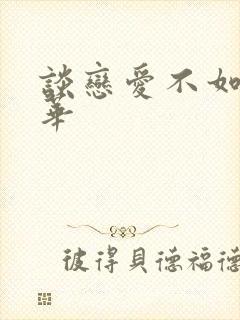 談戀愛不如
華
彼得貝德福德